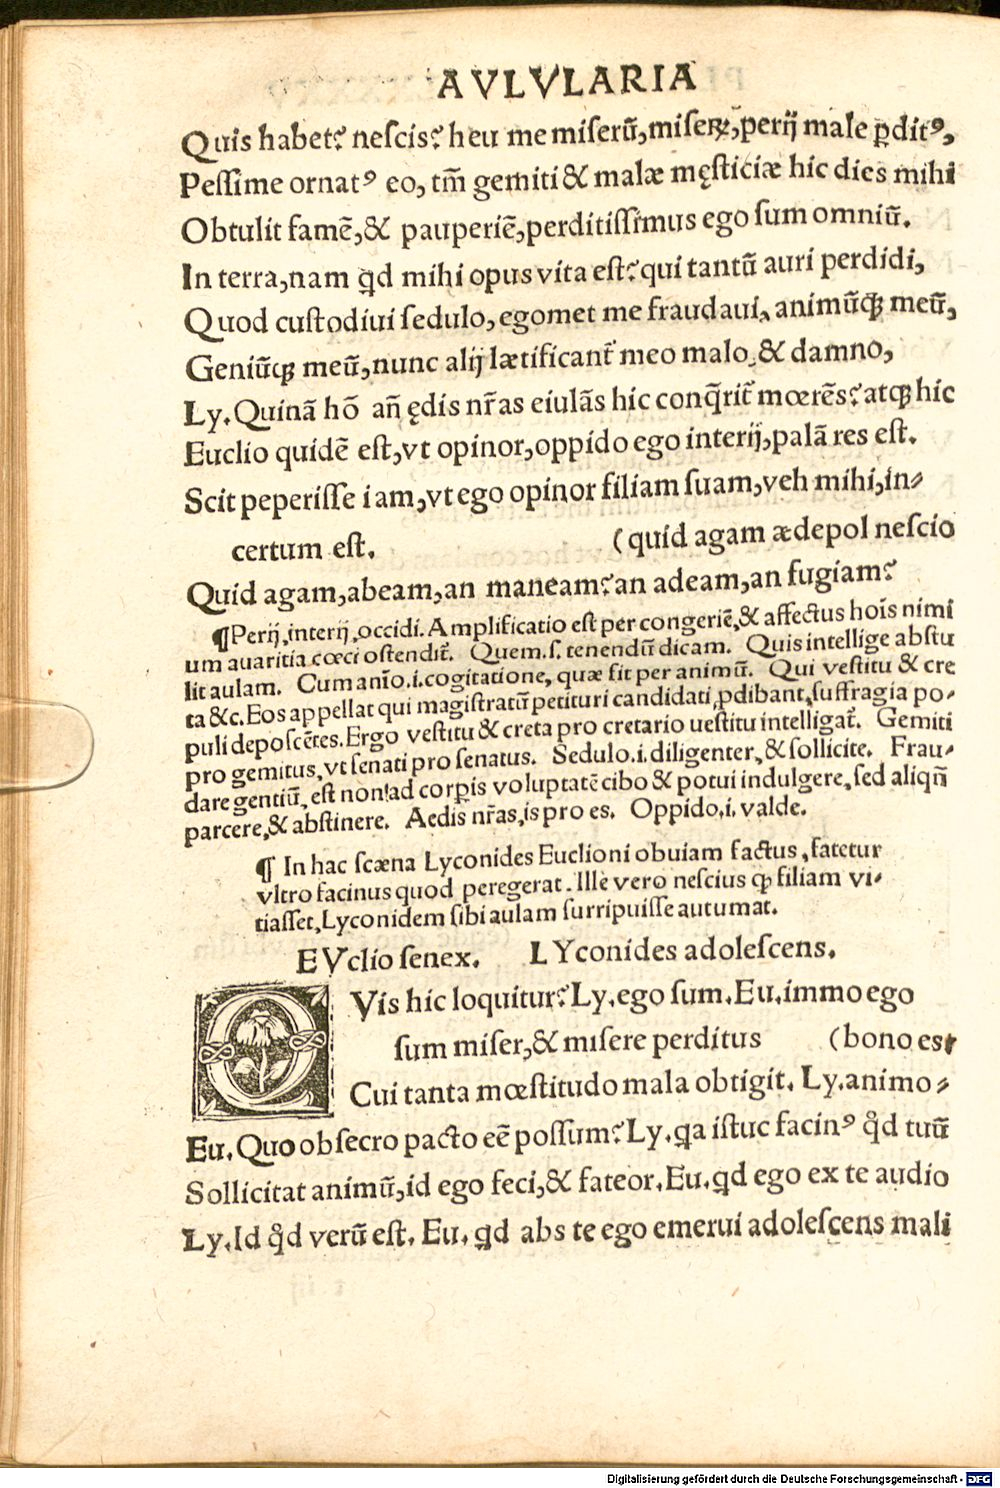 AVLVLARIA
Quis habet? nescis? heu me miserū, miseꝝ, perij male ꝑditꝰ,
Pessime ornatꝰ eo, tm̄ gemiti & malæ męsticiæ hic dies mihi
Obtulit famē, & pauperiē, perditissimus ego sum omniū.
In terra, nam qd mihi opus vita est? qui tantū auri perdidi,
Quod custodiui sedulo, egomet me fraudaui, animūqꝫ meū,
Geniūqꝫ meū, nunc alij lætificant᷑ meo malo, & damno,
Ly. Quinā hō añ ędis nr̄as eiulās hic conq̄rit᷑ mœrēs? atqꝫ hic
Euclio quidē est, vt opinor, oppido ego interij, palā res est.
Scit peperisse iam, vt ego opinor filiam suam, veh mihi, in⸗
certum est. (quid agam ædepol nescio
Quid agam, abeam, an maneam? an adeam, an fugiam?
¶ Perij, interij, occidi. Amplificatio est per congeriē, & affectus hoīs nimi
um auaritia cœci ostendit᷑. Quem. s. tenendū dicam. Quis intellige abstu
lit aulam. Cum anīo. i. cogitatione, quæ fit per animū. Qui vestitu & cre
ta &c. Eos appellat qui magistratū petituri candidati, ꝓdibant, suffragia po⸗
puli deposcētes. Ergo vestitu & creta pro cretario uestitu intelligat᷑. Gemiti
pro gemitus, vt senati pro senatus. Sedulo. i. diligenter, & sollicite. Frau⸗
dare gentiū, est non! ad corꝑis voluptatē cibo & potui indulgere, sed aliqñ
parcere, & abstinere. Aedis nr̄as, is pro es. Oppido. i. valde.
¶ In hac scæna Lyconides Euclioni obuiam factus, fatetur
vltro facinus quod peregerat. Ille vero nescius qꝫ filiam vi⸗
tiasset, Lyconidem sibi aulam surripuisse autumat.
EVclio senex. LYconides adolescens.
QVis hic loquitur? Ly. ego sum. Eu. immo ego
sum miser, & misere perditus (bono est
Cui tanta mœstitudo mala obtigit. Ly. animo⸗
Eu. Quo obsecro pacto eē possum? Ly. qa istuc facinꝰ qd̓ tuū
Sollicitat animū, id ego feci, & fateor. Eu. qd ego ex te audio
Ly. Id qd̓ verū est. Eu. qd abs te ego emerui adolescens mali
Digitalisierung gefördert durch die Deutsche Forschungsgemeinschaft - DFG